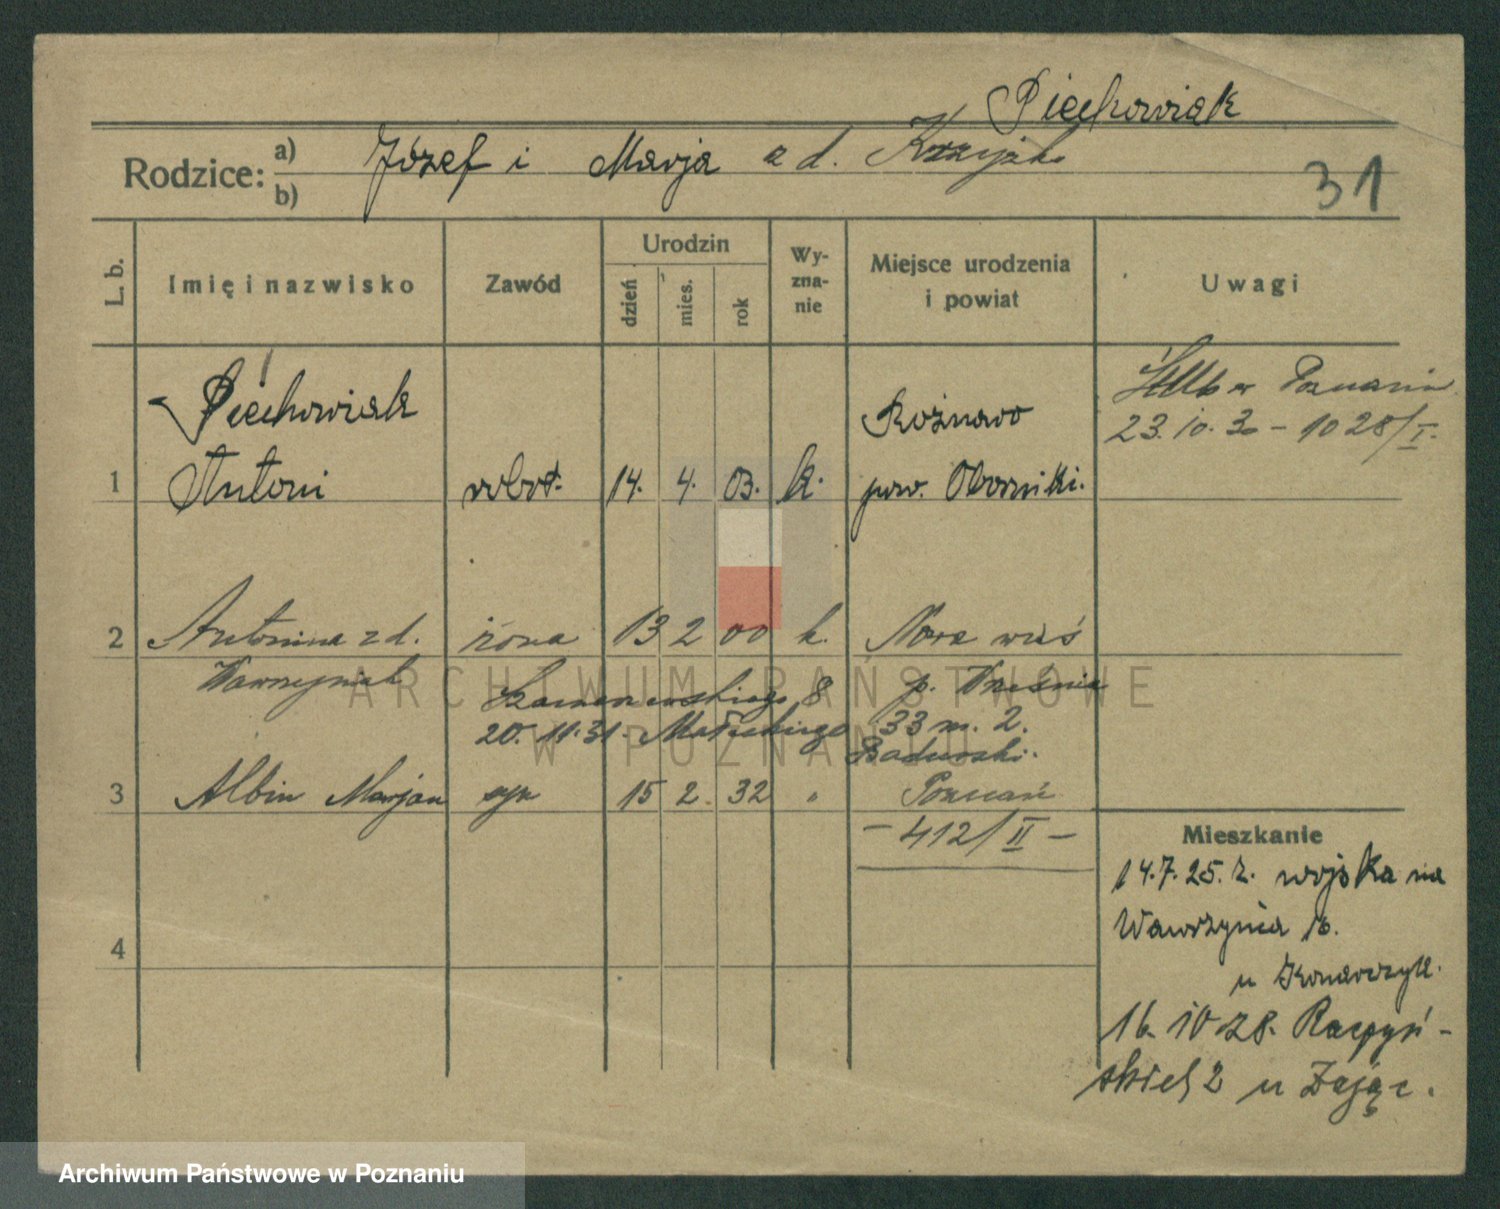 Piechowiak
Rodzice: a) Józef i Marja z d.
b)
31
L. b.
Imię i nazwisko
Zawód
Urodzin
dzień
mies.
rok
Wy-
zna-
nie
Miejsce urodzenia
i powiat
Uwagi
Piechowiak
Antoni
1
robot.
14. 4. 03. k.
Rożnowo
pow. Oborniki.
Ślub w Poznaniu
23.10.30 - 1028/I.
2 Antonina z d. żona 13 2 00 k. Nowa wieś
Wawrzyniak
p. Września
8
20.11.31. Małeckiego 33 m. 2.
3 Albin Marjan syn 15 2 32 " Poznań
- 412/II -
4
Mieszkanie
14.7.25. z. wojska na
Wawrzynia 16.
u Konarczyk.
16.10.28. Raczyń-
skich 2 u Zając.
ARCHIWUM PAŃSTWOWE
W POZNANIU
Archiwum Państwowe w Poznaniu